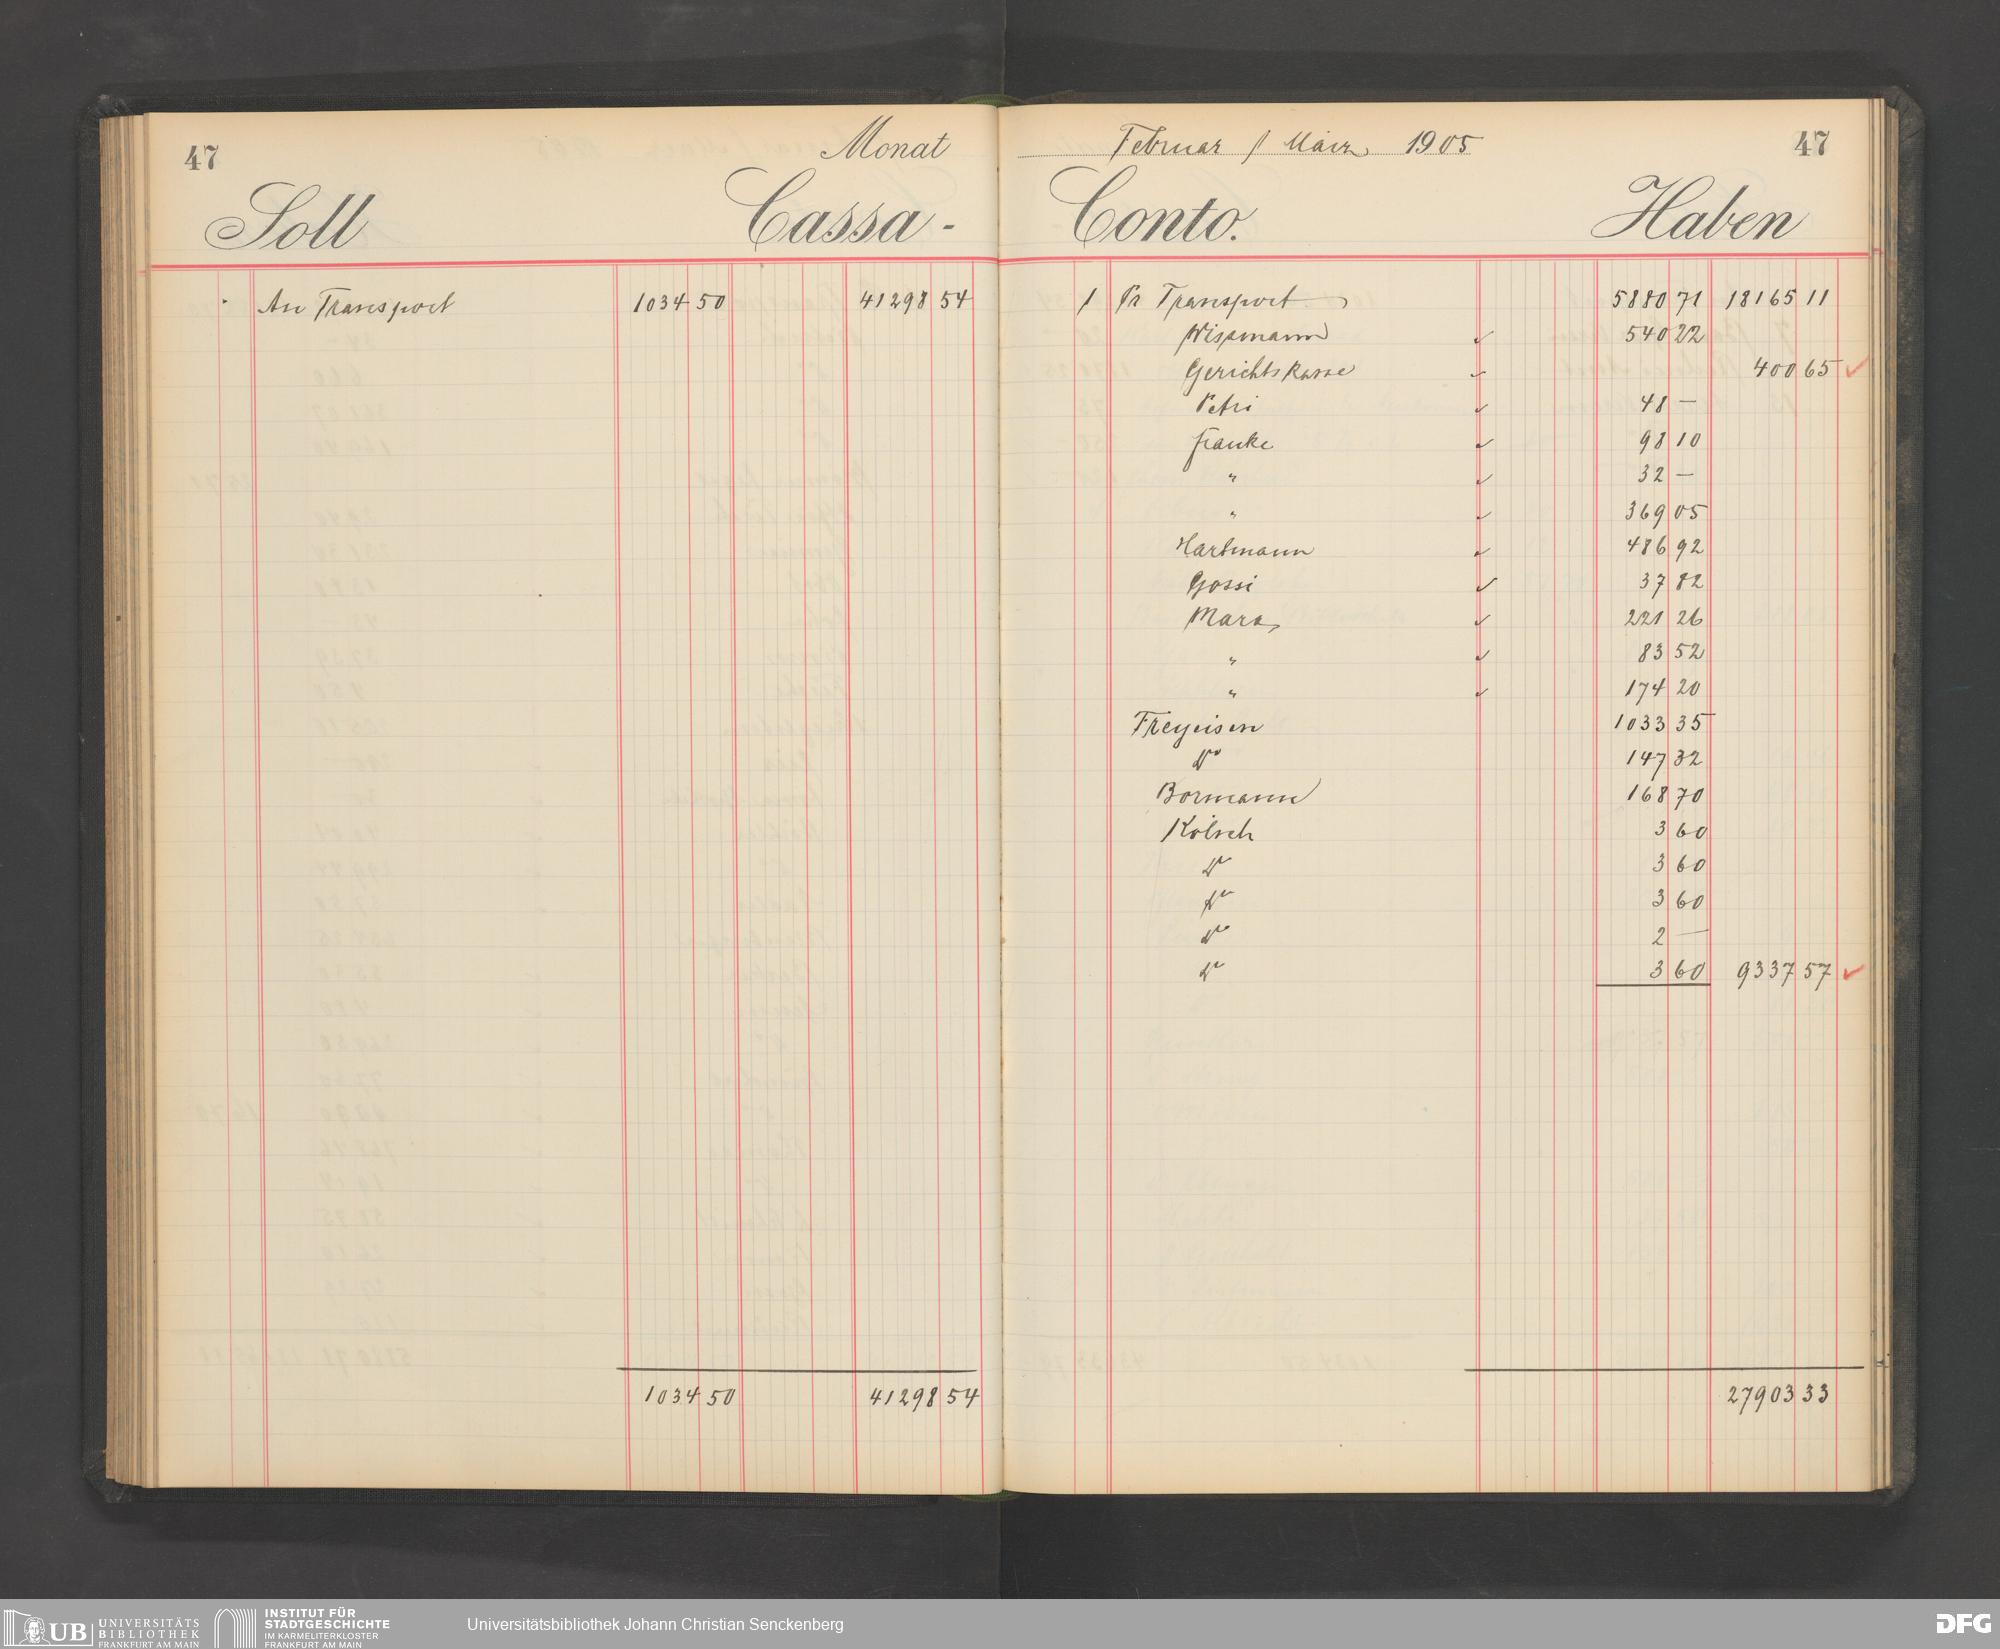 47 Monat
Soll Cassa-
An Transport 1034 50 41298 54
1034 50 41298 54
Februar / März 1905 47
Conto. Haben
1 Pr Transport 5880 71 18165 11
Wissmann ✓ 540 22
Gerichtskasse ✓ 400 65 ✓
Petri ✓ 48 —
Franke ✓ 98 10
" ✓ 32 —
" ✓ 369 05
Hartmann ✓ 486 92
Gossi ✓ 37 82
Marx ✓ 221 26
" ✓ 83 52
" ✓ 174 20
Freyeisen 1033 35
do 147 32
Bormann 168 70
Kölsch 3 60
do 3 60
do 3 60
do 2 —
do 3 60 9337 57 ✓
27903 33
UB UNIVERSITÄTS BIBLIOTHEK FRANKFURT AM MAIN
INSTITUT FÜR STADTGESCHICHTE IM KARMELITERKLOSTER FRANKFURT AM MAIN
Universitätsbibliothek Johann Christian Senckenberg
DFG